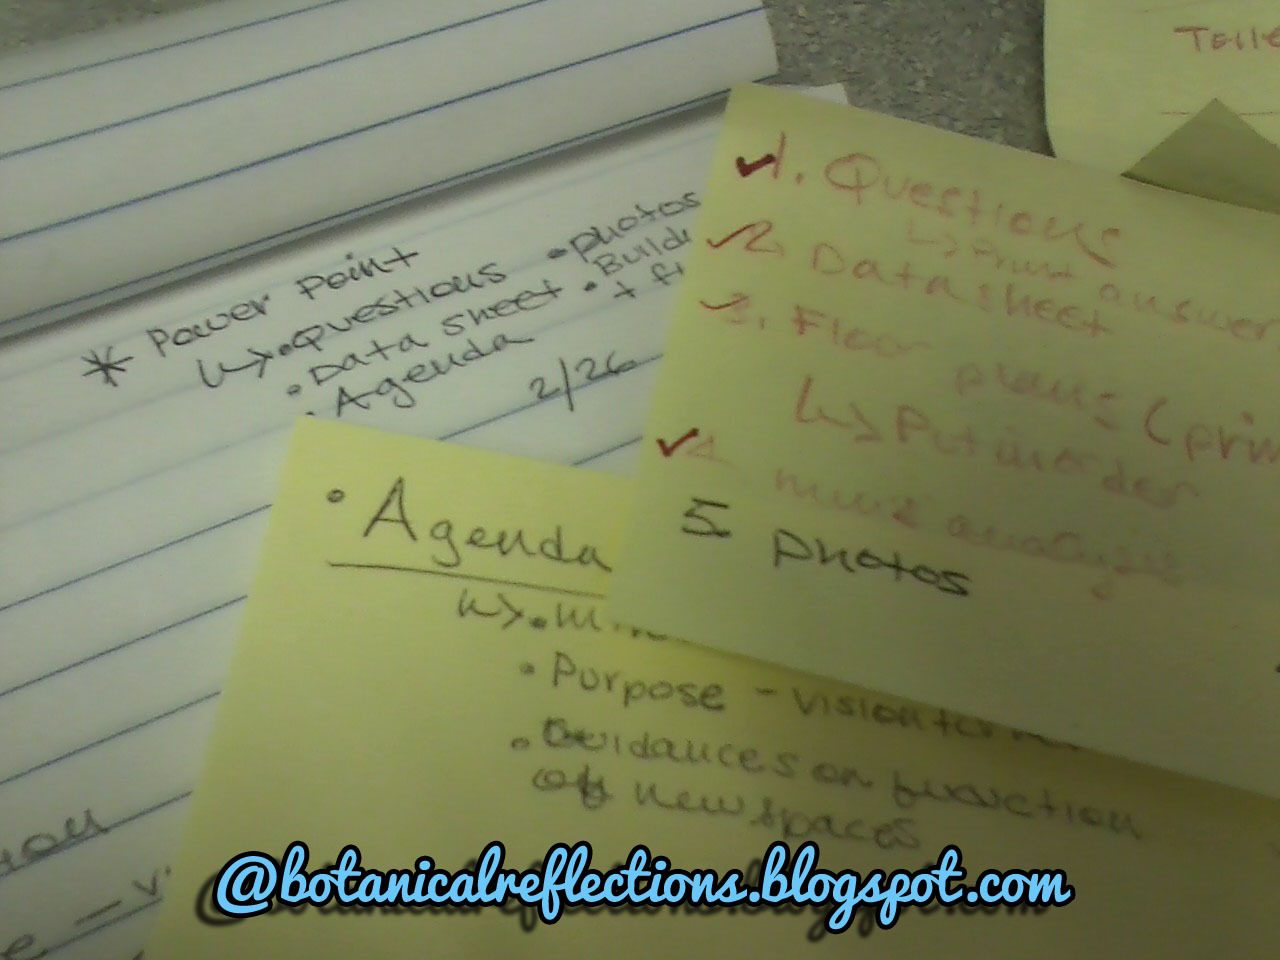 * Power Point
↳ • Questions • photos
• Data sheet •
• Agenda
2/26
Telle
✓1. Questions
↳ Print answer
✓2. Data sheet
✓3. Floor plans (prin
↳ Put in order
✓4. analysis
5. photos
• Agenda
↳ •
• Purpose - vision
• Guidances on function
of new spaces
@botanicalreflections.blogspot.com